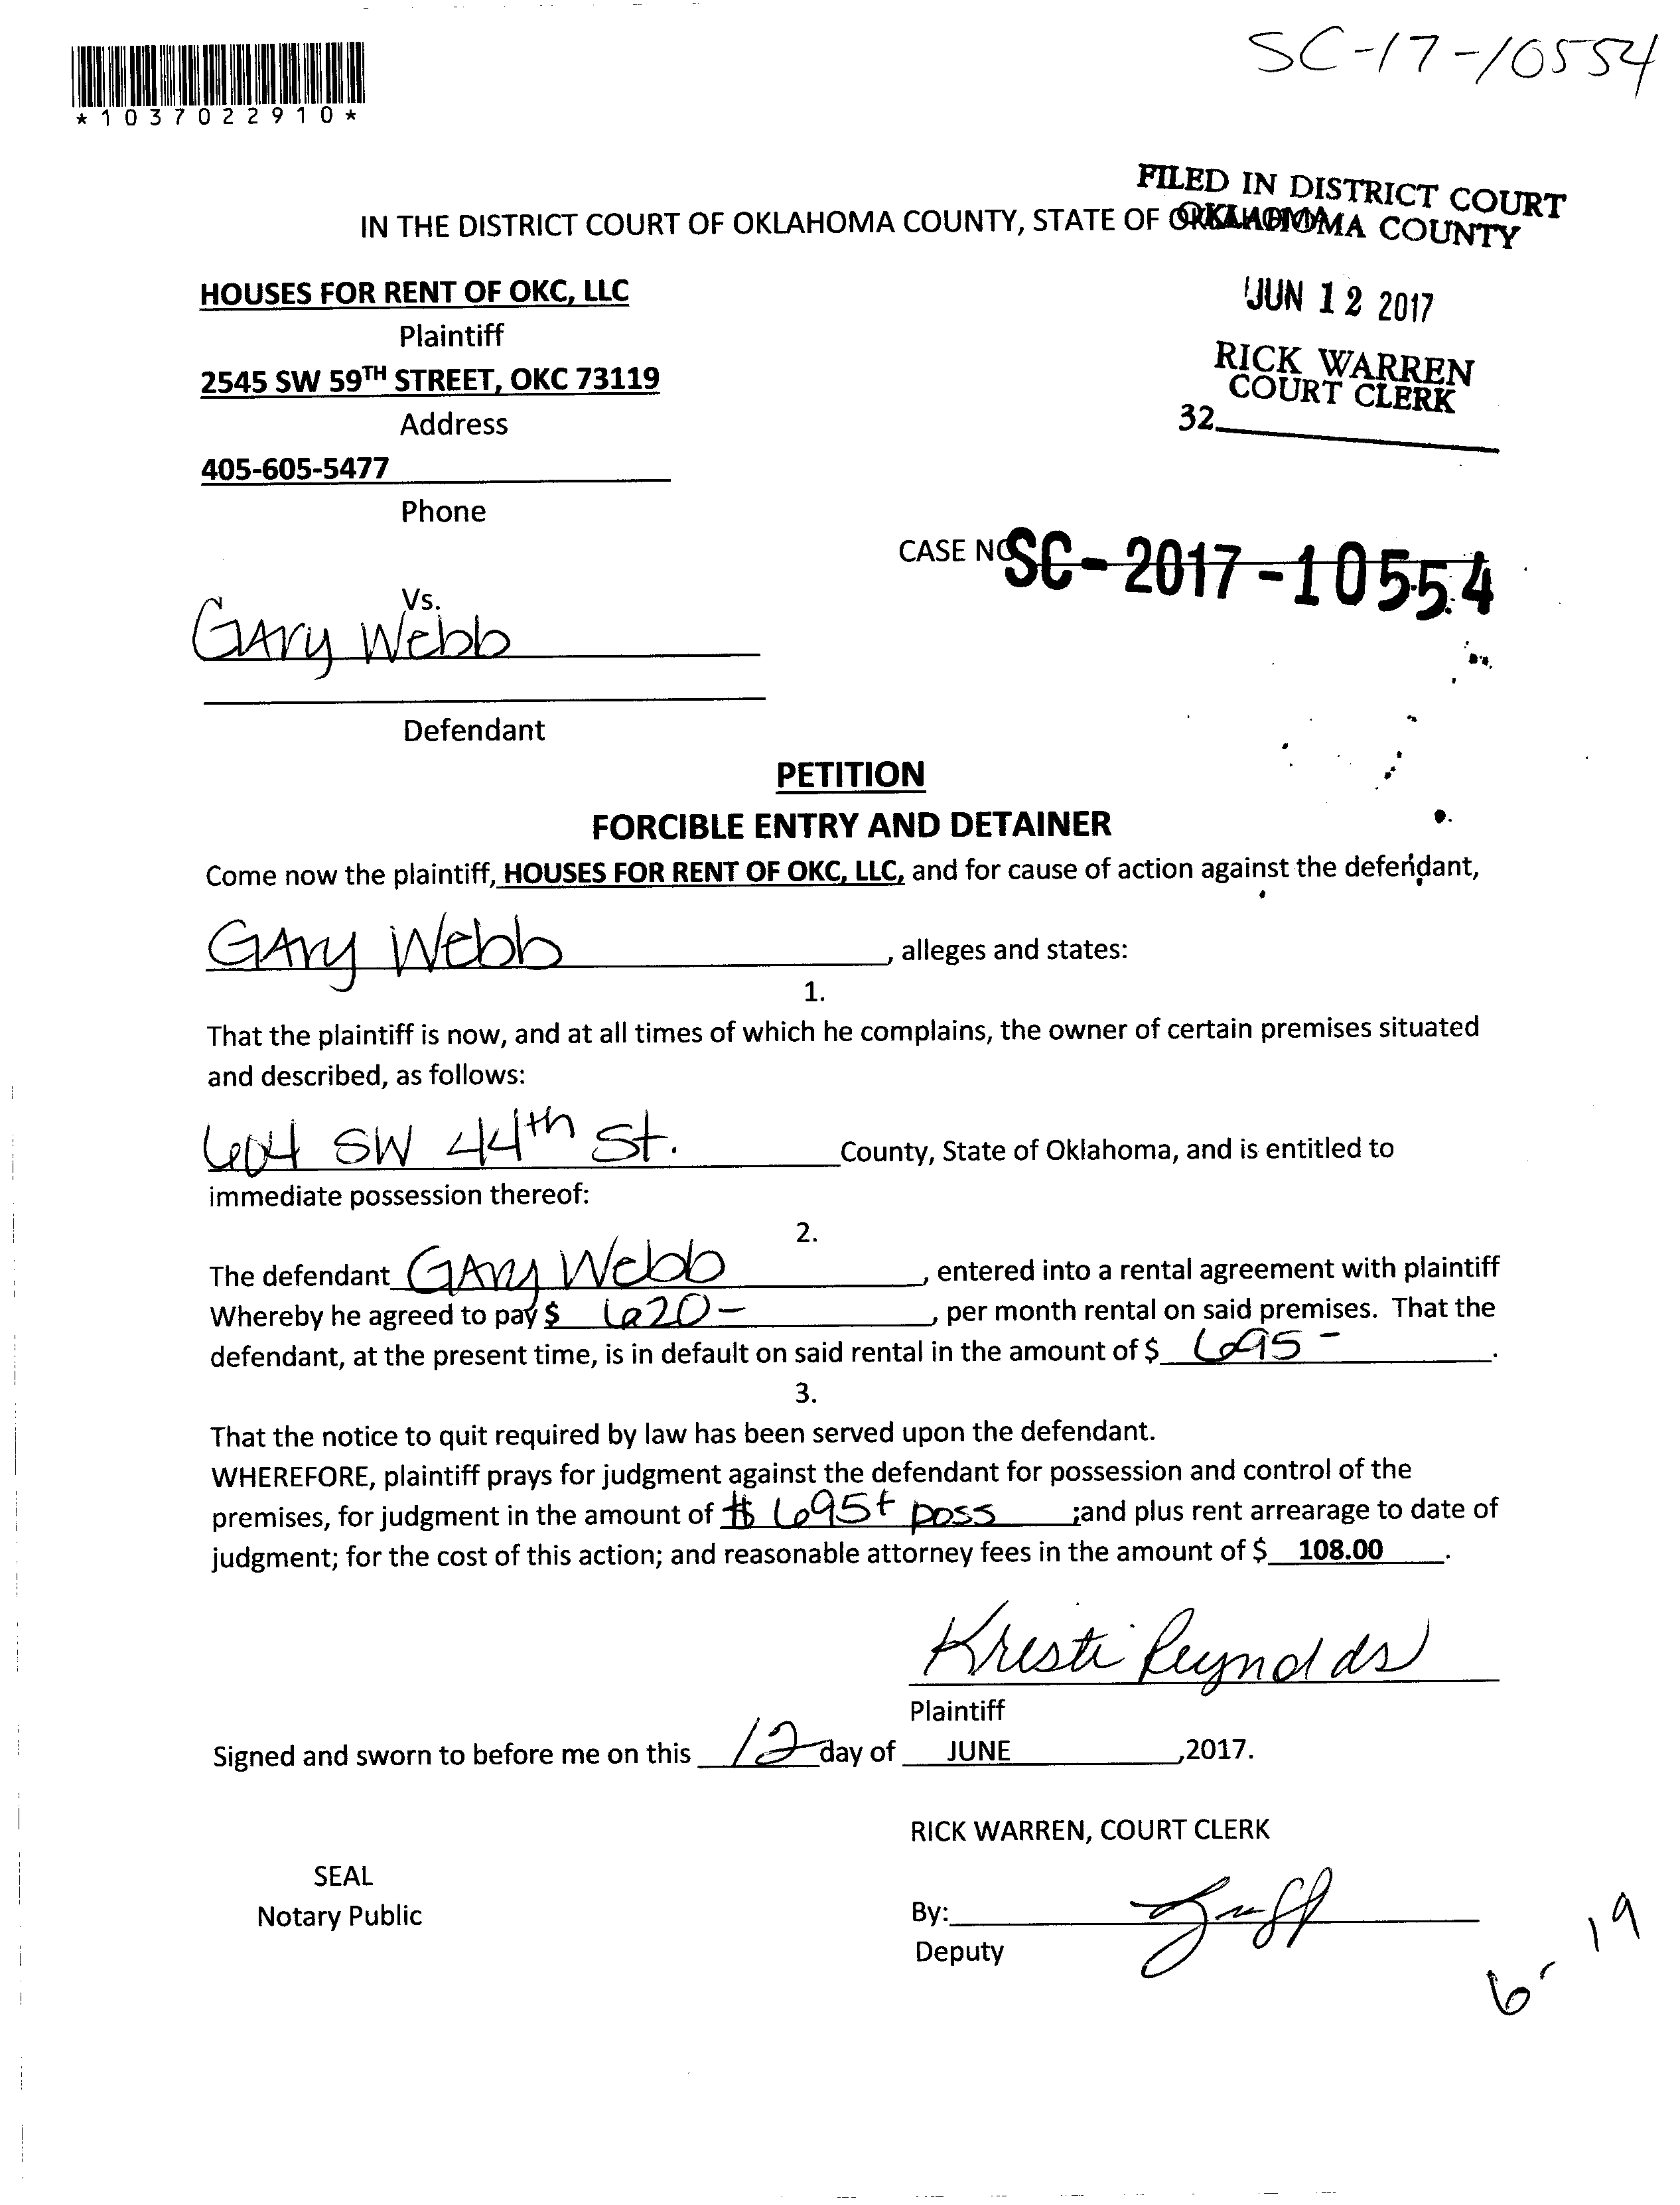 SC-17-10554
*1037022910*
FILED IN DISTRICT COURT
OKLAHOMA COUNTY
IN THE DISTRICT COURT OF OKLAHOMA COUNTY, STATE OF OKLAHOMA
HOUSES FOR RENT OF OKC, LLC
Plaintiff
JUN 12 2017
RICK WARREN
COURT CLERK
32
2545 SW 59TH STREET, OKC 73119
Address
405-605-5477
Phone
CASE NO SC-2017-10554
Vs.
Gary Webb
Defendant
PETITION
FORCIBLE ENTRY AND DETAINER
Come now the plaintiff, HOUSES FOR RENT OF OKC, LLC, and for cause of action against the defendant,
Gary Webb, alleges and states:
1.
That the plaintiff is now, and at all times of which he complains, the owner of certain premises situated
and described, as follows:
604 SW 44th St. County, State of Oklahoma, and is entitled to
immediate possession thereof:
2.
The defendant Gary Webb, entered into a rental agreement with plaintiff
Whereby he agreed to pay $ 620-, per month rental on said premises. That the
defendant, at the present time, is in default on said rental in the amount of $ 695-.
3.
That the notice to quit required by law has been served upon the defendant.
WHEREFORE, plaintiff prays for judgment against the defendant for possession and control of the
premises, for judgment in the amount of $ 695+ poss ;and plus rent arrearage to date of
judgment; for the cost of this action; and reasonable attorney fees in the amount of $ 108.00.
Kristi Reynolds
Plaintiff
Signed and sworn to before me on this 12 day of JUNE,2017.
RICK WARREN, COURT CLERK
SEAL
Notary Public
By:
Deputy
6-19